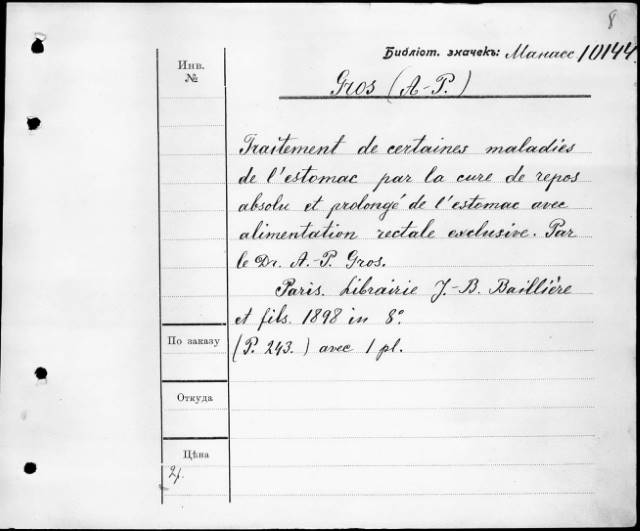 8
Библіот. значекъ: Манасс 10144
Инв.
№
Gros (A-P.)
Traitement de certaines maladies
de l'estomac par la cure de repos
absolu et prolongé de l'estomac avec
alimentation rectale exclusive. Par
le Dr. A.-P. Gros.
Paris. Librairie J.-B. Baillière
et fils. 1898 in 8°
(P. 243.) avec 1 pl.
По заказу
Откуда
Цѣна